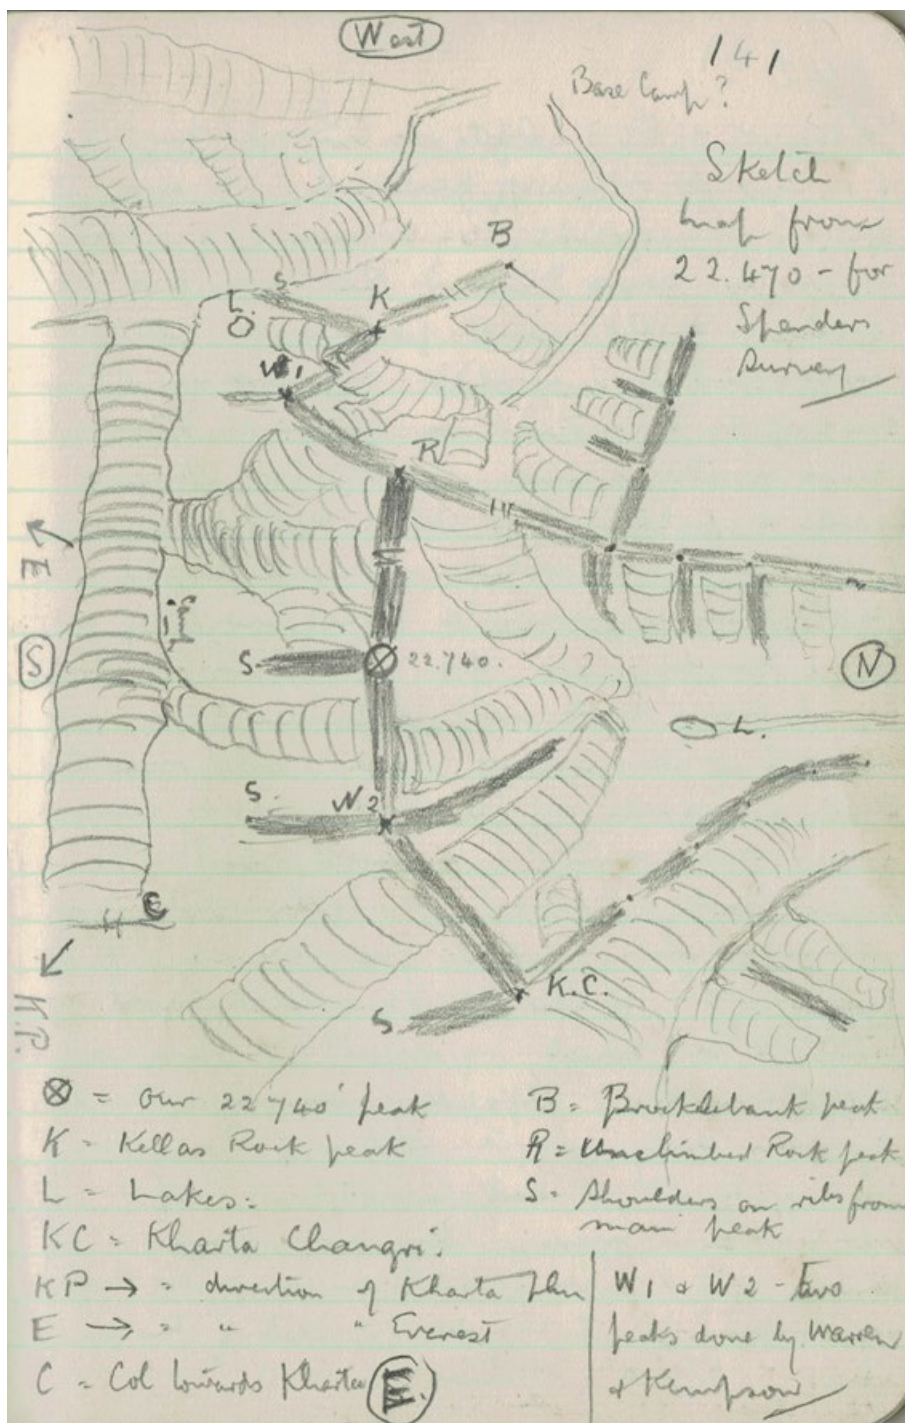 West
141
Base Camp?
Sketch
map from
22.470 - for
Spenders
Survey
B
S
L.
K
W1
R
E
S
S
22.740.
N
L.
S.
W2
C
K.C.
S
K.P.
⊗ = our 22740' peak
K = Kellas Rock peak
L = Lakes.
KC = Kharta Changri.
KP → = direction of Kharta Phu
E → = " " Everest
C = Col towards Kharta
B = Brocklebank peak
R = Unclimbed Rock peak
S = Shoulders or ribs from
main peak
W1 & W2 - two
peaks done by Warren
& Kempson